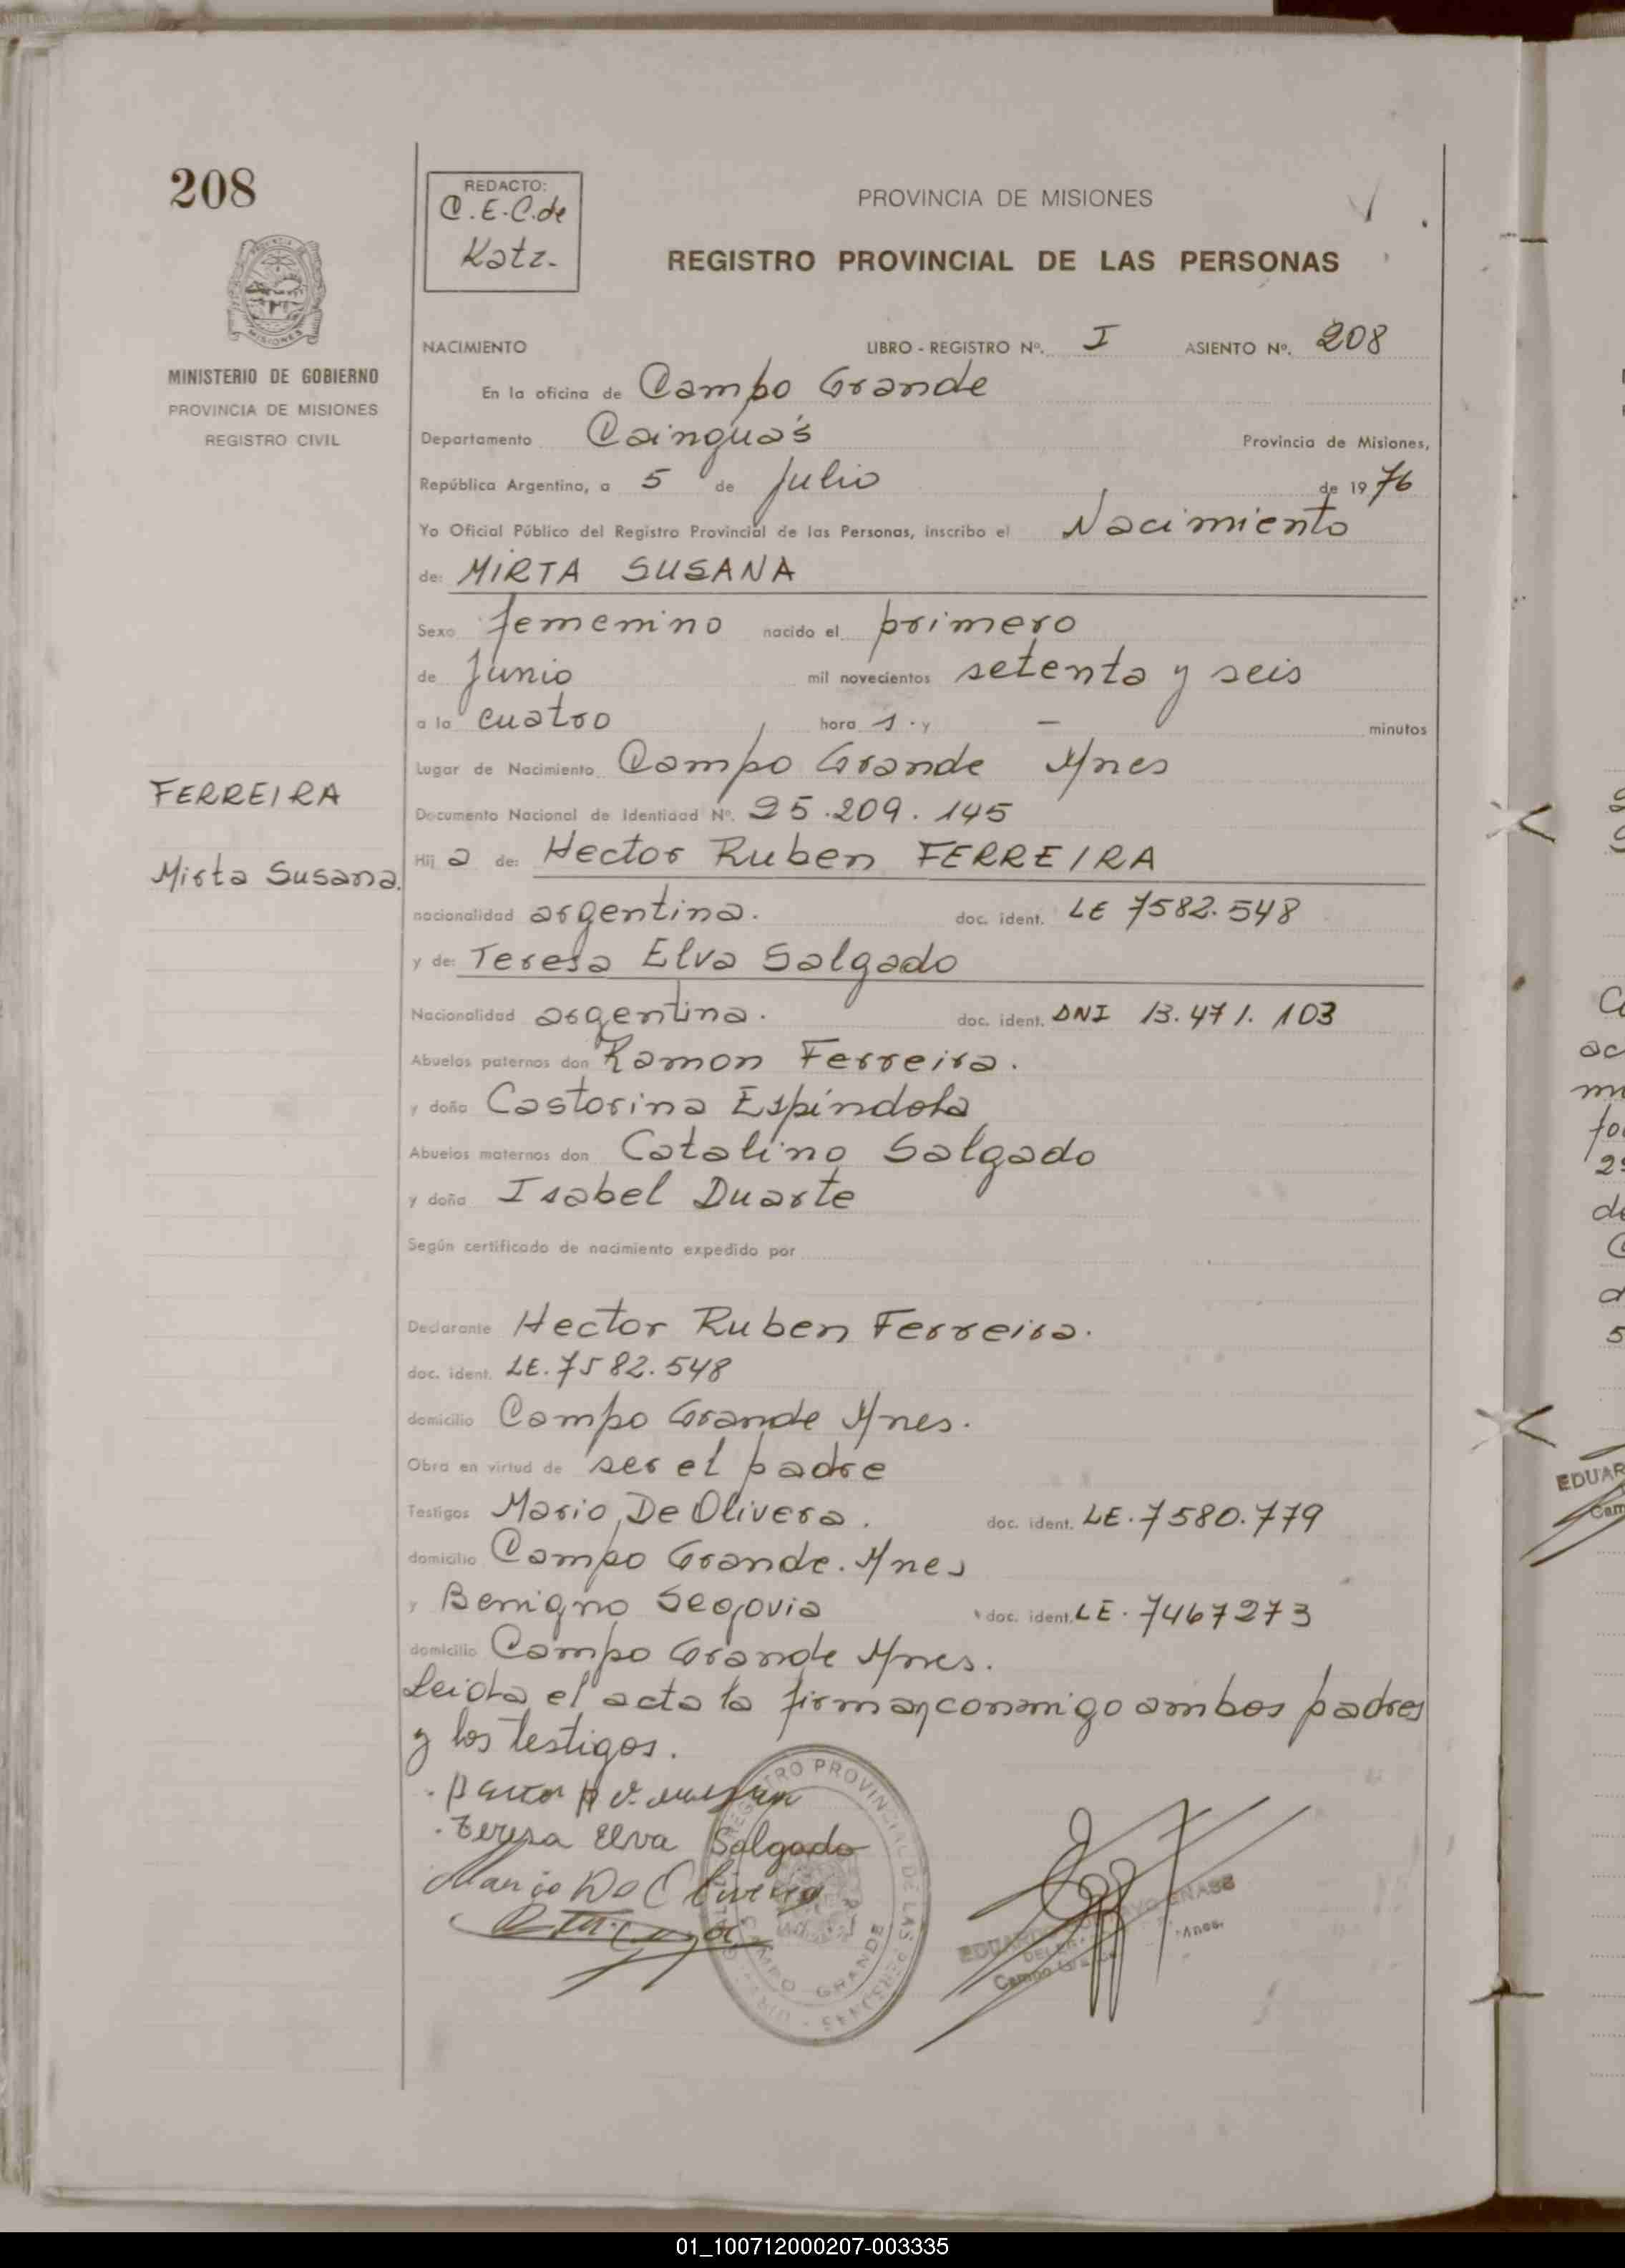 208
REDACTO:
C.E.C. de
Katz.
PROVINCIA DE MISIONES
REGISTRO PROVINCIAL DE LAS PERSONAS
MISIONES
MINISTERIO DE GOBIERNO
PROVINCIA DE MISIONES
REGISTRO CIVIL
NACIMIENTO LIBRO - REGISTRO Nº. I ASIENTO Nº. 208
En la oficina de Campo Grande
Departamento Cainguás Provincia de Misiones,
República Argentina, a 5 de Julio de 1976
Yo Oficial Público del Registro Provincial de las Personas, inscribo el Nacimiento
de: MIRTA SUSANA
Sexo femenino nacido el primero
de Junio mil novecientos setenta y seis
a la cuatro hora s. y — minutos
Lugar de Nacimiento Campo Grande Mnes
Documento Nacional de Identidad Nº. 25.209.145
FERREIRA
Mirta Susana.
Hij a de: Hector Ruben FERREIRA
nacionalidad argentina. doc. ident. LE 7582.548
y de: Teresa Elva Salgado
Nacionalidad argentina. doc. ident. DNI 13.471.103
Abuelos paternos don Ramon Ferreira.
y doña Castorina Espíndola
Abuelos maternos don Catalino Salgado
y doña Isabel Duarte
Según certificado de nacimiento expedido por
Declarante Hector Ruben Ferreira.
doc. ident. LE. 7582.548
domicilio Campo Grande Mnes.
Obra en virtud de ser el padre
Testigos Mario De Olivera. doc. ident. LE. 7580.779
domicilio Campo Grande. Mnes
y Benigno Segovia doc. ident. LE. 7467273
domicilio Campo Grande Mnes.
Leida el acta la firman conmigo ambos padres
y los testigos.
Teresa Elva Salgado
Mario De Olivera
REGISTRO PROVINCIAL DE LAS PERSONAS
CAMPO GRANDE
EDUARDO
Campo Grande
Mnes.
EDUAR
Cam
01_100712000207-003335